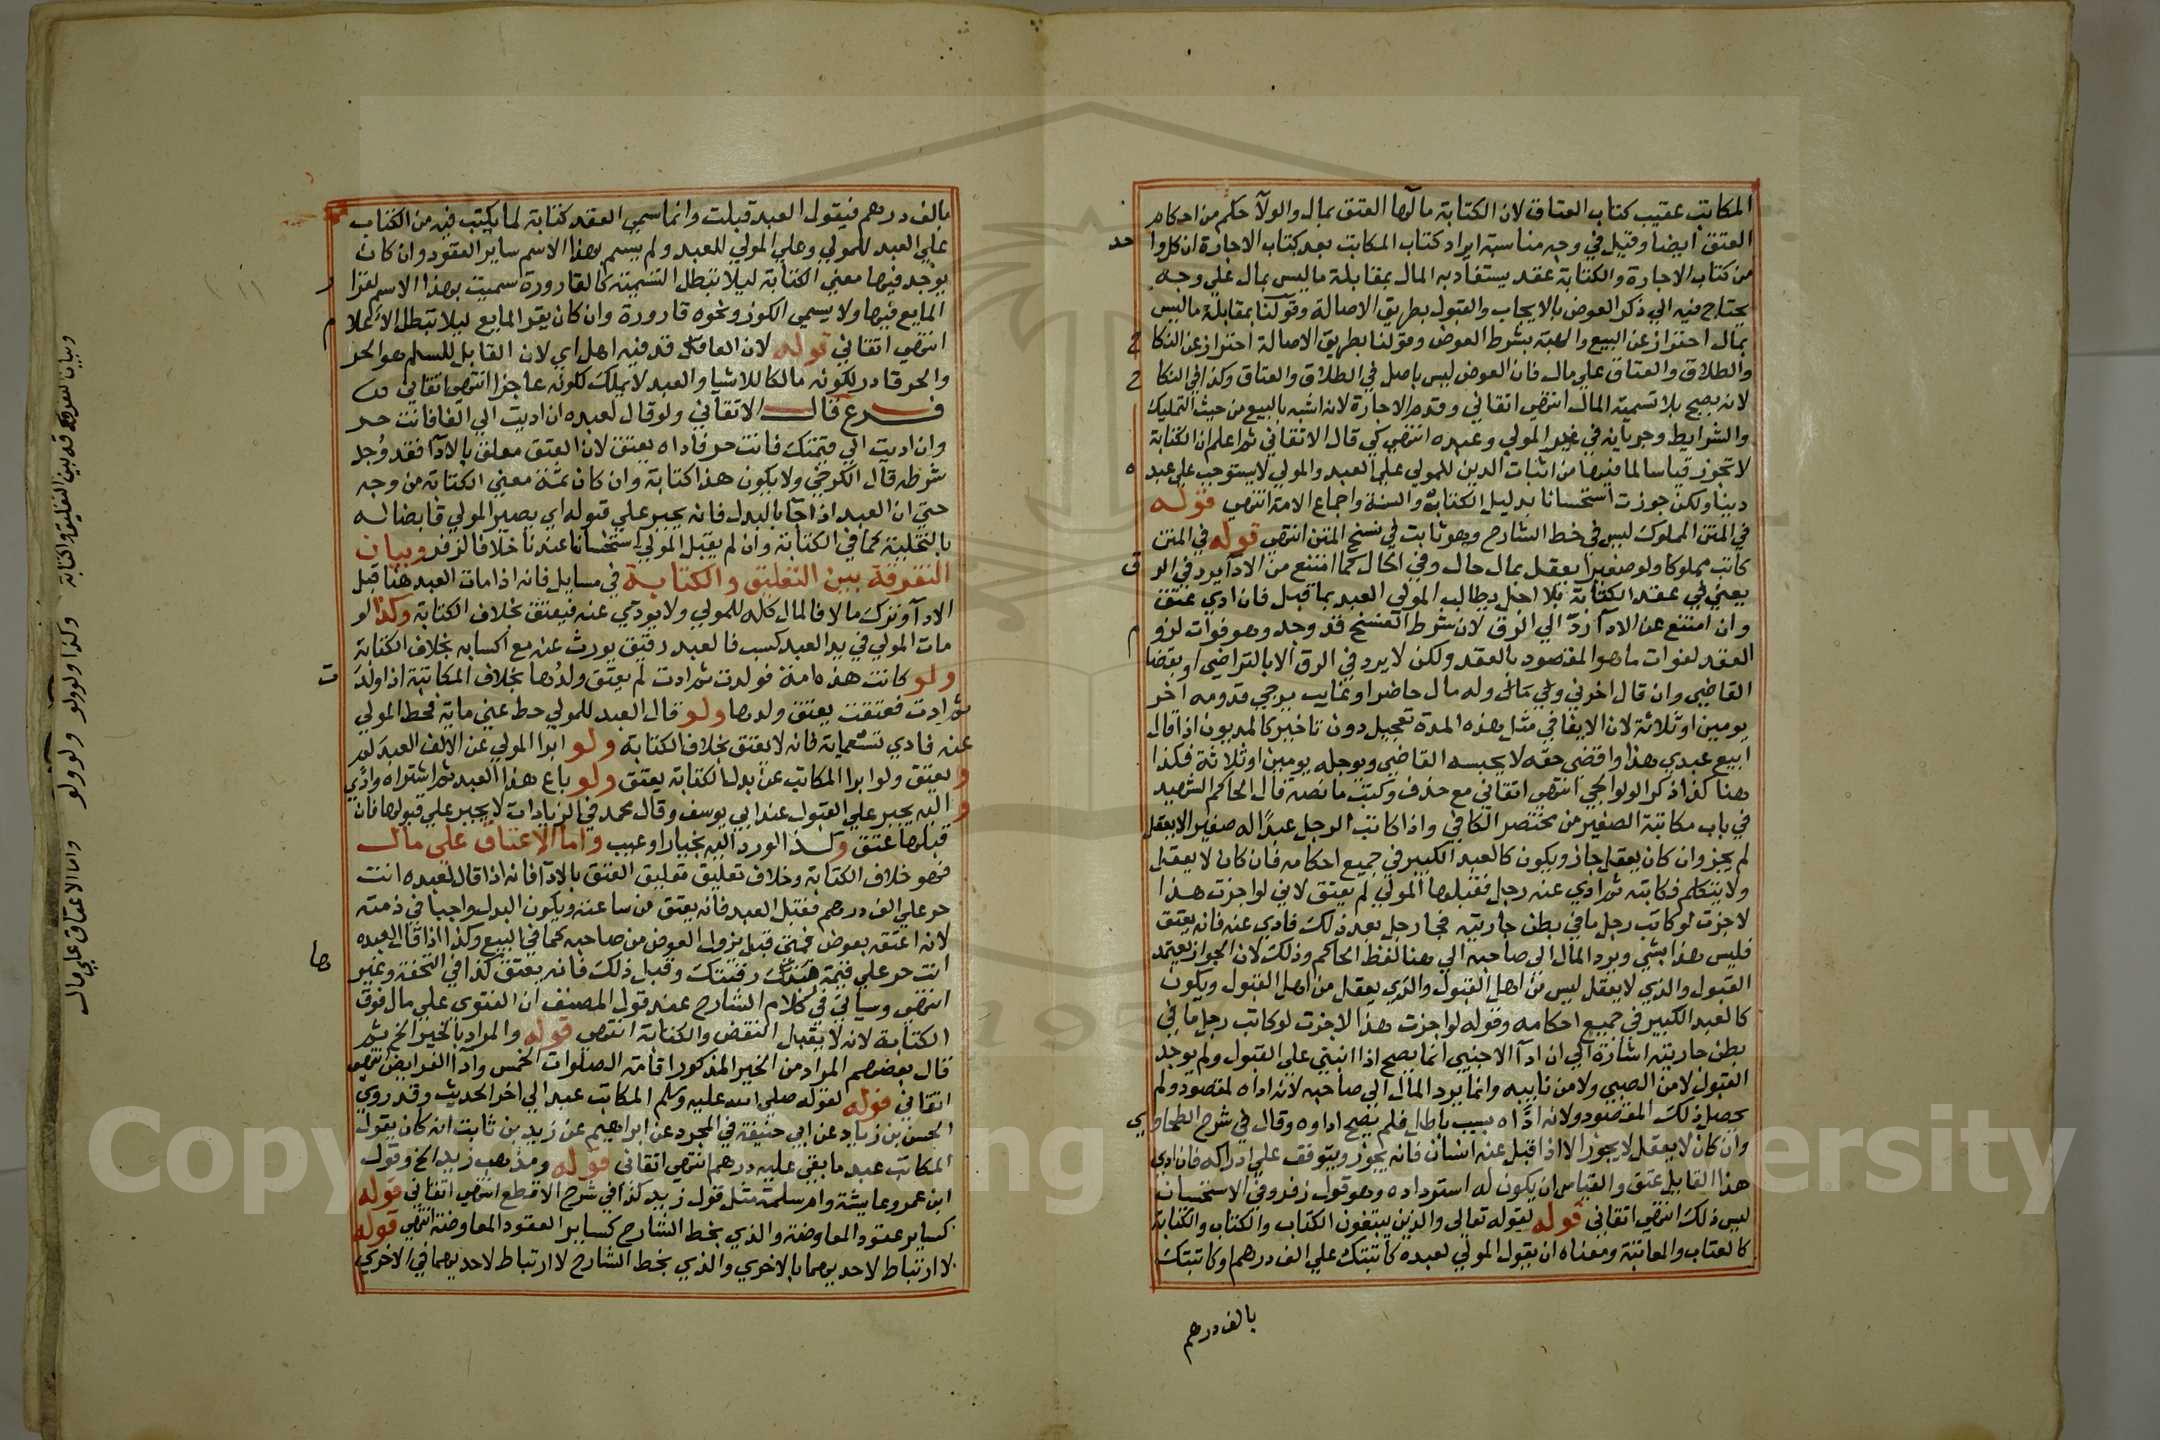 المكاتب عقيب كتاب العتاق لان الكتابة مآلها العتق بمال والولآ حكم من احكام
العتق ايضا وقيل في وجه مناسبة ايراد كتاب المكاتب بعد كتاب الاجارة ان كل وا حد
من كتاب الاجارة والكتابة عقد يستفاد به المال بمقابلة ما ليس بمال علي وجه
يحتاج فيه الي ذكر العوض بالايجاب والقبول بطريق الاصالة وقولنا بمقابلة ما ليس
بمال احتراز عن البيع والهبة بشرط العوض وقولنا بطريق الاصالة احتراز عن النكا ح
والطلاق والعتاق علي مال فان العوض ليس باصل في الطلاق والعتاق وكذا في النكا ح
لانه يصح بلا تسمية المال انتهي اتقاني وقدم الاجارة لانه اشبه بالبيع من حيث التمليك
والشرايط وجريانه في غير المولي وعبده انتهي كي قال الاتقاني ثم اعلم ان الكتابة
لا تجوز قياسا لما فيها من اثبات الدين للمولي علي العبد والمولي لا يستوجب علي عبد ه
دينا ولكن جوزت استحسانا بدليل الكتاب والسنة واجماع الامة انتهي قوله
في المتن المملوك ليس في خط الشارح وهو ثابت في نسخ المتن انتهي قوله في المتن
كاتب مملوكا ولو صغيرا يعقل بمال حال وفي الحال كما امتنع من الادآ يرد في الر ق
يعني في عقد الكتابة بلا اجل يطالب المولي العبد بما قبل فان ادي عتق
وان امتنع عن الادآ رد الي الرق لان شرط الفسخ قد وجد وهو فوات لزو م
العقد لفوات ما هو المقصود بالعقد ولكن لا يرد في الرق الا بالتراضي او بقضا
القاضي وان قال اخرني وله مال حاضر او غايب يرجي قدومه اخر
يومين او ثلاثة لان الايفا في مثل هذه المدة تعجيل دون تاخير كالمديون اذا قال
ابيع عبدي هذا واقضي حقه لا يحبسه القاضي ويوجله يومين او ثلاثة فكذا
هنا كذا ذكر الولوالجي انتهي اتقاني مع حذف وكتب ما نصه قال الحاكم الشهيد
في باب مكاتبة الصغير من مختصر الكافي واذا كاتب الرجل عبدا له صغير الا يعقل
لم يجز وان كان يعقل جاز ويكون كالعبد الكبير في جميع احكامه فان كان لا يعقل
ولا يتكلم فكاتبه ثم ادي عنه رجل فقبلها المولي لم يعتق لاني لو اجزت هذا
لاجزت لو كاتب رجل ما في بطن جاريته فجا رجل بعد ذلك فادي عنه فانه يعتق
فليس هذا بشي ويرد المال الي صاحبه الي هنا لفظ الحاكم وذلك لان الجواز يعتمد
القبول والذي لا يعقل ليس من اهل القبول والذي يعقل من اهل القبول ويكون
كالعبد الكبير في جميع احكامه وقوله لو اجزت هذا لاجزت لو كاتب رجل ما في
بطن جاريته اشارة الي ان ادآ الاجنبي انما يصح اذا انبني علي القبول ولم يوجد
القبول لا من الصبي ولا من نايبه وانما يرد المال الي صاحبه لانه اداه لمقصود ولم
يحصل ذلك المقصود ولانه اداه بسبب باطل فلم يصح اداوه وقال في شرح الطحاوي
وان كان لا يعقل لا يجوز الا اذا قبل عنه انسان فانه يجوز ويتوقف علي ادراكه فان ادي
هذا القابل عتق والقياس ان يكون له استرداده وهو قول زفر وفي الاستحسان
ليس ذلك انتهي اتقاني قوله لقوله تعالي والذين يبتغون الكتاب والكتاب والكتابة
كالعتاب والمعاتبة ومعناه ان يقول المولي لعبده كاتبتك علي الف درهم او كاتبتك
بالف درهم
بالف درهم فيقول العبد قبلت وانما سمي العقد كتابة لما يكتب فيه من الكتاب
علي العبد للمولي وعلي المولي للعبد ولم يسم بهذا الاسم ساير العقود وان كان
يوجد فيها معني الكتابة ليلا تبطل التسمية كالقارورة سميت بهذا الاسم لقرا ر
المايع فيها ولا يسمي الكوز ونحوه قارورة وان كان يقر المايع ليلا تبطل الاعلا م
انتهي اتقاني قوله لان العاقل قد فيه اهل اي لان القابل للسلم هو الحر
والحر قادر لكونه مالكا للاشيا والعبد لا يملك لكونه عاجزا انتهي اتقاني
فرع قال الاتقاني ولو قال لعبده ان اديت الي الفا فانت حر
وان اديت الي قيمتك فانت حر فاداه يعتق لان العتق معلق بالادآ فقد وجد
شرطه قال الكرخي ولا يكون هذا كتابة وان كان ثمة معني الكتابة من وجه
حتي ان العبد اذا جآ بالبدل فانه يجبر علي قبوله اي يصير المولي قابضا له
بالتخلية كما في الكتابة وان لم يقبل المولي استحسانا عندنا خلافا لزفر وبيان
التفرقة بين التعليق والكتابة في مسايل فانه اذا مات العبد هنا قبل
الادآ وترك مالا فالمال كله للمولي ولا يودي عنه فيعتق بخلاف الكتابة وكذا لو
مات المولي في يد العبد كسب فالعبد رقيق يورث عنه مع اكسابه بخلاف الكتابة
ولو كانت هذه امة فولدت ثم ادت لم يعتق ولدها بخلاف المكاتبة اذا ولد ت
ثم ادت فعتقت يعتق ولدها ولو قال العبد للمولي حط عني ماية فحط المولي
عنه فادي تسعماية فانه لا يعتق بخلاف الكتابة ولو ابرا المولي عن الالف العبد لم
يعتق ولو ابرا المكاتب عن بدل الكتابة يعتق ولو باع هذا العبد ثم اشتراه وادي
اليه يجبر علي القبول عند ابي يوسف وقال محمد في الزيادات لا يجبر علي قبولها فان
قبلها عتق وكذا لو رد اليه بخيار او عيب واما الاعتاق علي مال
فهو خلاف الكتابة وخلاف تعليق العتق بالادآ فانه اذا قال لعبده انت
حر علي الف درهم فقبل العبد فانه يعتق من ساعته ويكون البدل واجبا في ذمته
لانه اعتقه بعوض فمتي قبل يزول العوض من صاحبه كما في البيع وكذا اذا قال لعبده
انت حر علي قيمة رقبتك وقبل ذلك فانه يعتق كذا في التحفة وغير ها
انتهي وسياتي في كلام الشارح عند قول المصنف ان الفتوي علي مال فوق
الكتابة لانه لا يقبل النقض والكتابة انتهي قوله والمراد بالخير الخ ثم
قال بعضهم المراد من الخير المذكور اقامة الصلوات الخمس وادآ الفرايض انتهي
اتقاني قوله لقوله صلي الله عليه وسلم المكاتب عبد الي اخر الحديث وقد روي
الحسن بن زياد عن ابي حنيفة في المجرد عن ابراهيم عن زيد بن ثابت انه كان يقول
المكاتب عبد ما بقي عليه درهم انتهي اتقاني قوله ومذهب زيد الخ وقول
ابن عمر وعايشة وام سلمة مثل قول زيد كذا في شرح الاقطع انتهي اتقاني قوله
كساير عقود المعاوضة والذي بخط الشارح كساير العقود المعاوضة انتهي قوله
لا ارتباط لاحديهما بالاخري والذي بخط الشارح لا ارتباط لاحديهما في الاخري
وبيان تفرقة بين التعليق والكتابة وكذا ولو ولو ولو ولو واما الاعتاق علي مال
Copy
ersity